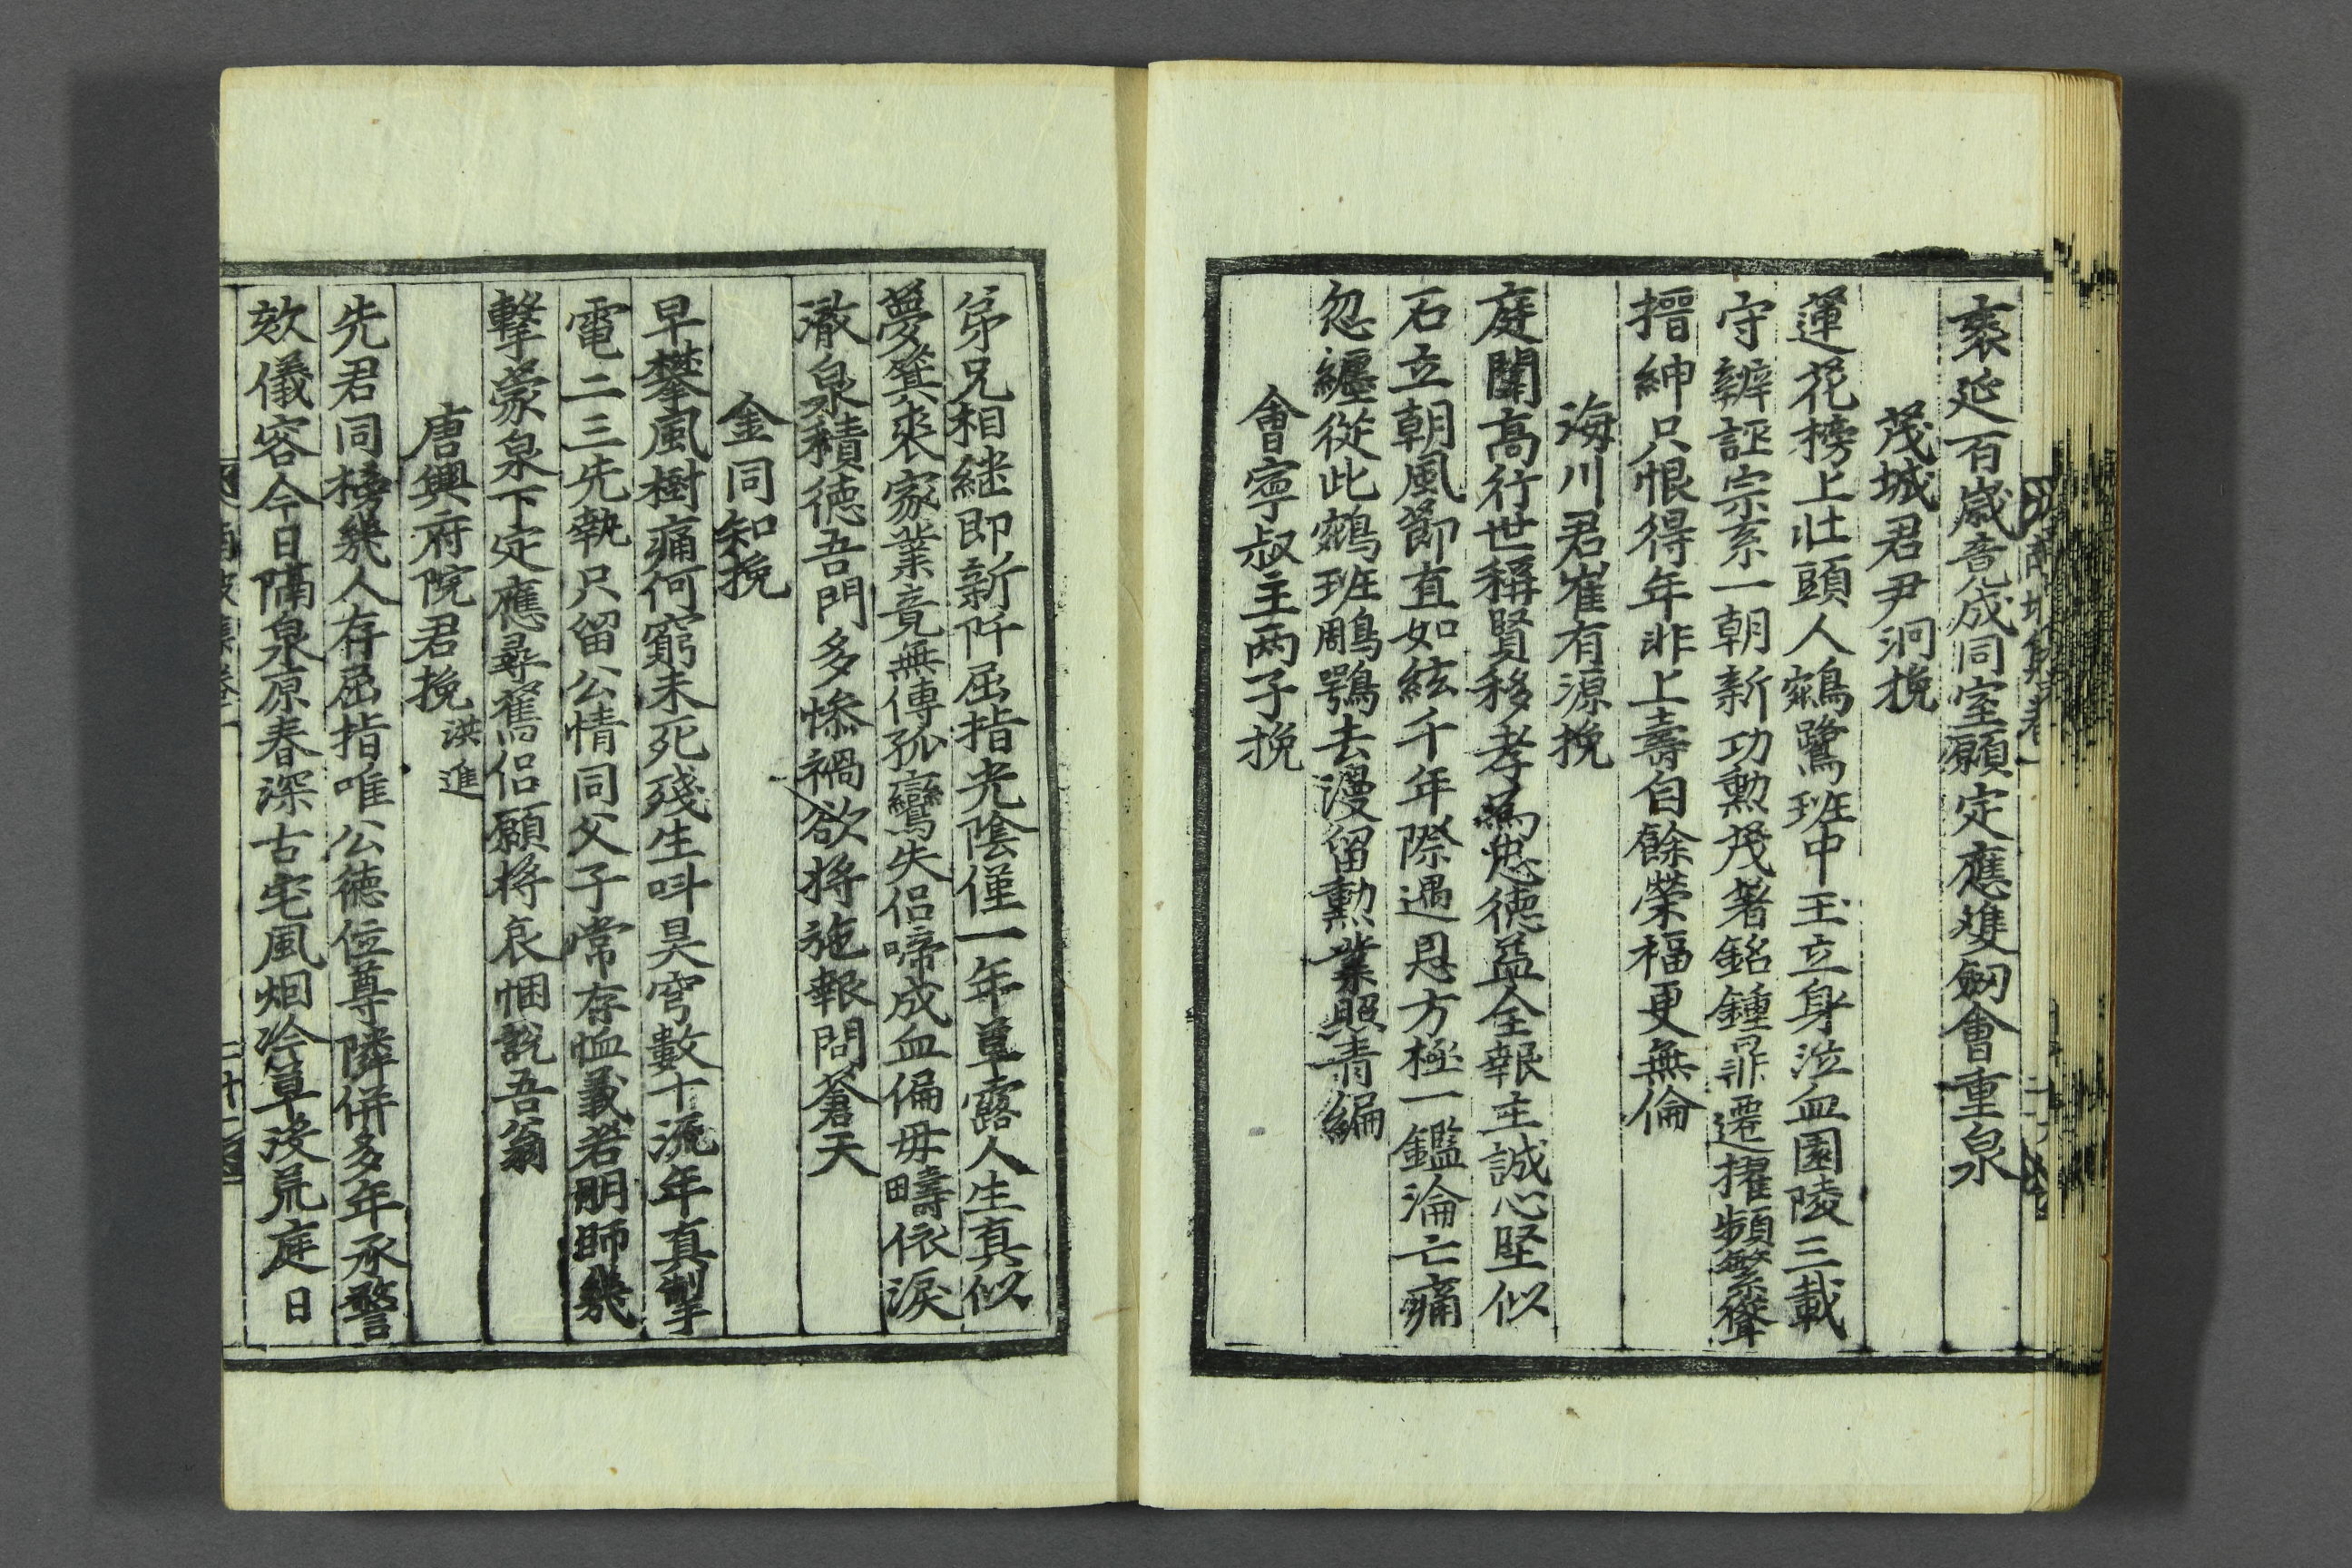 袠延百歲竟成同室願定應雙劒會重泉
茂城君尹泂挽
蓮花榜上壯頭人鵷鷺班中玉立身泣血園陵三載
守辨誣宗系一朝新功勲茂著銘鍾鼎遷擢頻繁聳
搢紳只恨得年非上壽自餘榮福更無倫
海川君崔有源挽
庭闈高行世稱賢移孝爲忠德益全報主誠心堅似
石立朝風節直如絃千年際遇恩方極一鑑淪亡痛
忽纒從此鵷班鵰鶚去謾留勲業照青編
會寧叔主兩子挽
弟兄相継即新阡屈指光陰僅一年草露人生真似
夢箕裘家業竟無傳孤鸞失侣啼成血偏母疇依淚
澈泉積德吾門多慘禍欲將施報問蒼天
金同知挽
早攀風樹痛何窮未死殘生叫昊穹數十流年真掣
電二三先執只留公情同父子常存恤義若朋師幾
擊蒙泉下定應尋舊侣願將哀悃說吾翁
唐興府院君挽 洪進
先君同榜幾人存屈指唯公德位尊隣併多年承警
欬儀容今日隔泉原春深古宅風烟冷草沒荒庭日